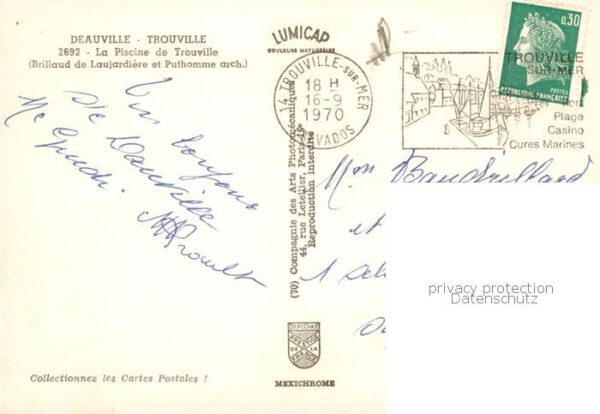 DEAUVILLE - TROUVILLE
2692 - La Piscine de Trouville
(Brillaud de Laujardière et Puthomme arch.)
LUMICAP
COULEURS NATURELLES
14 TROUVILLE-SUR-MER
18 H
16-9
1970
CALVADOS
0,30
POSTES
REPUBLIQUE FRANÇAISE
TROUVILLE
SUR-MER
Plage
Casino
Cures Marines
Bonjour
de Deauville
(70) Compagnie des Arts Photomécaniques
44, rue Letellier, Paris-15e
Reproduction interdite
Mon
Baudrillard
et
1
privacy protection
Datenschutz
DIPLOME
PRESTIGE
DE LA
FRANCE
MEXICHROME
Collectionnez les Cartes Postales !